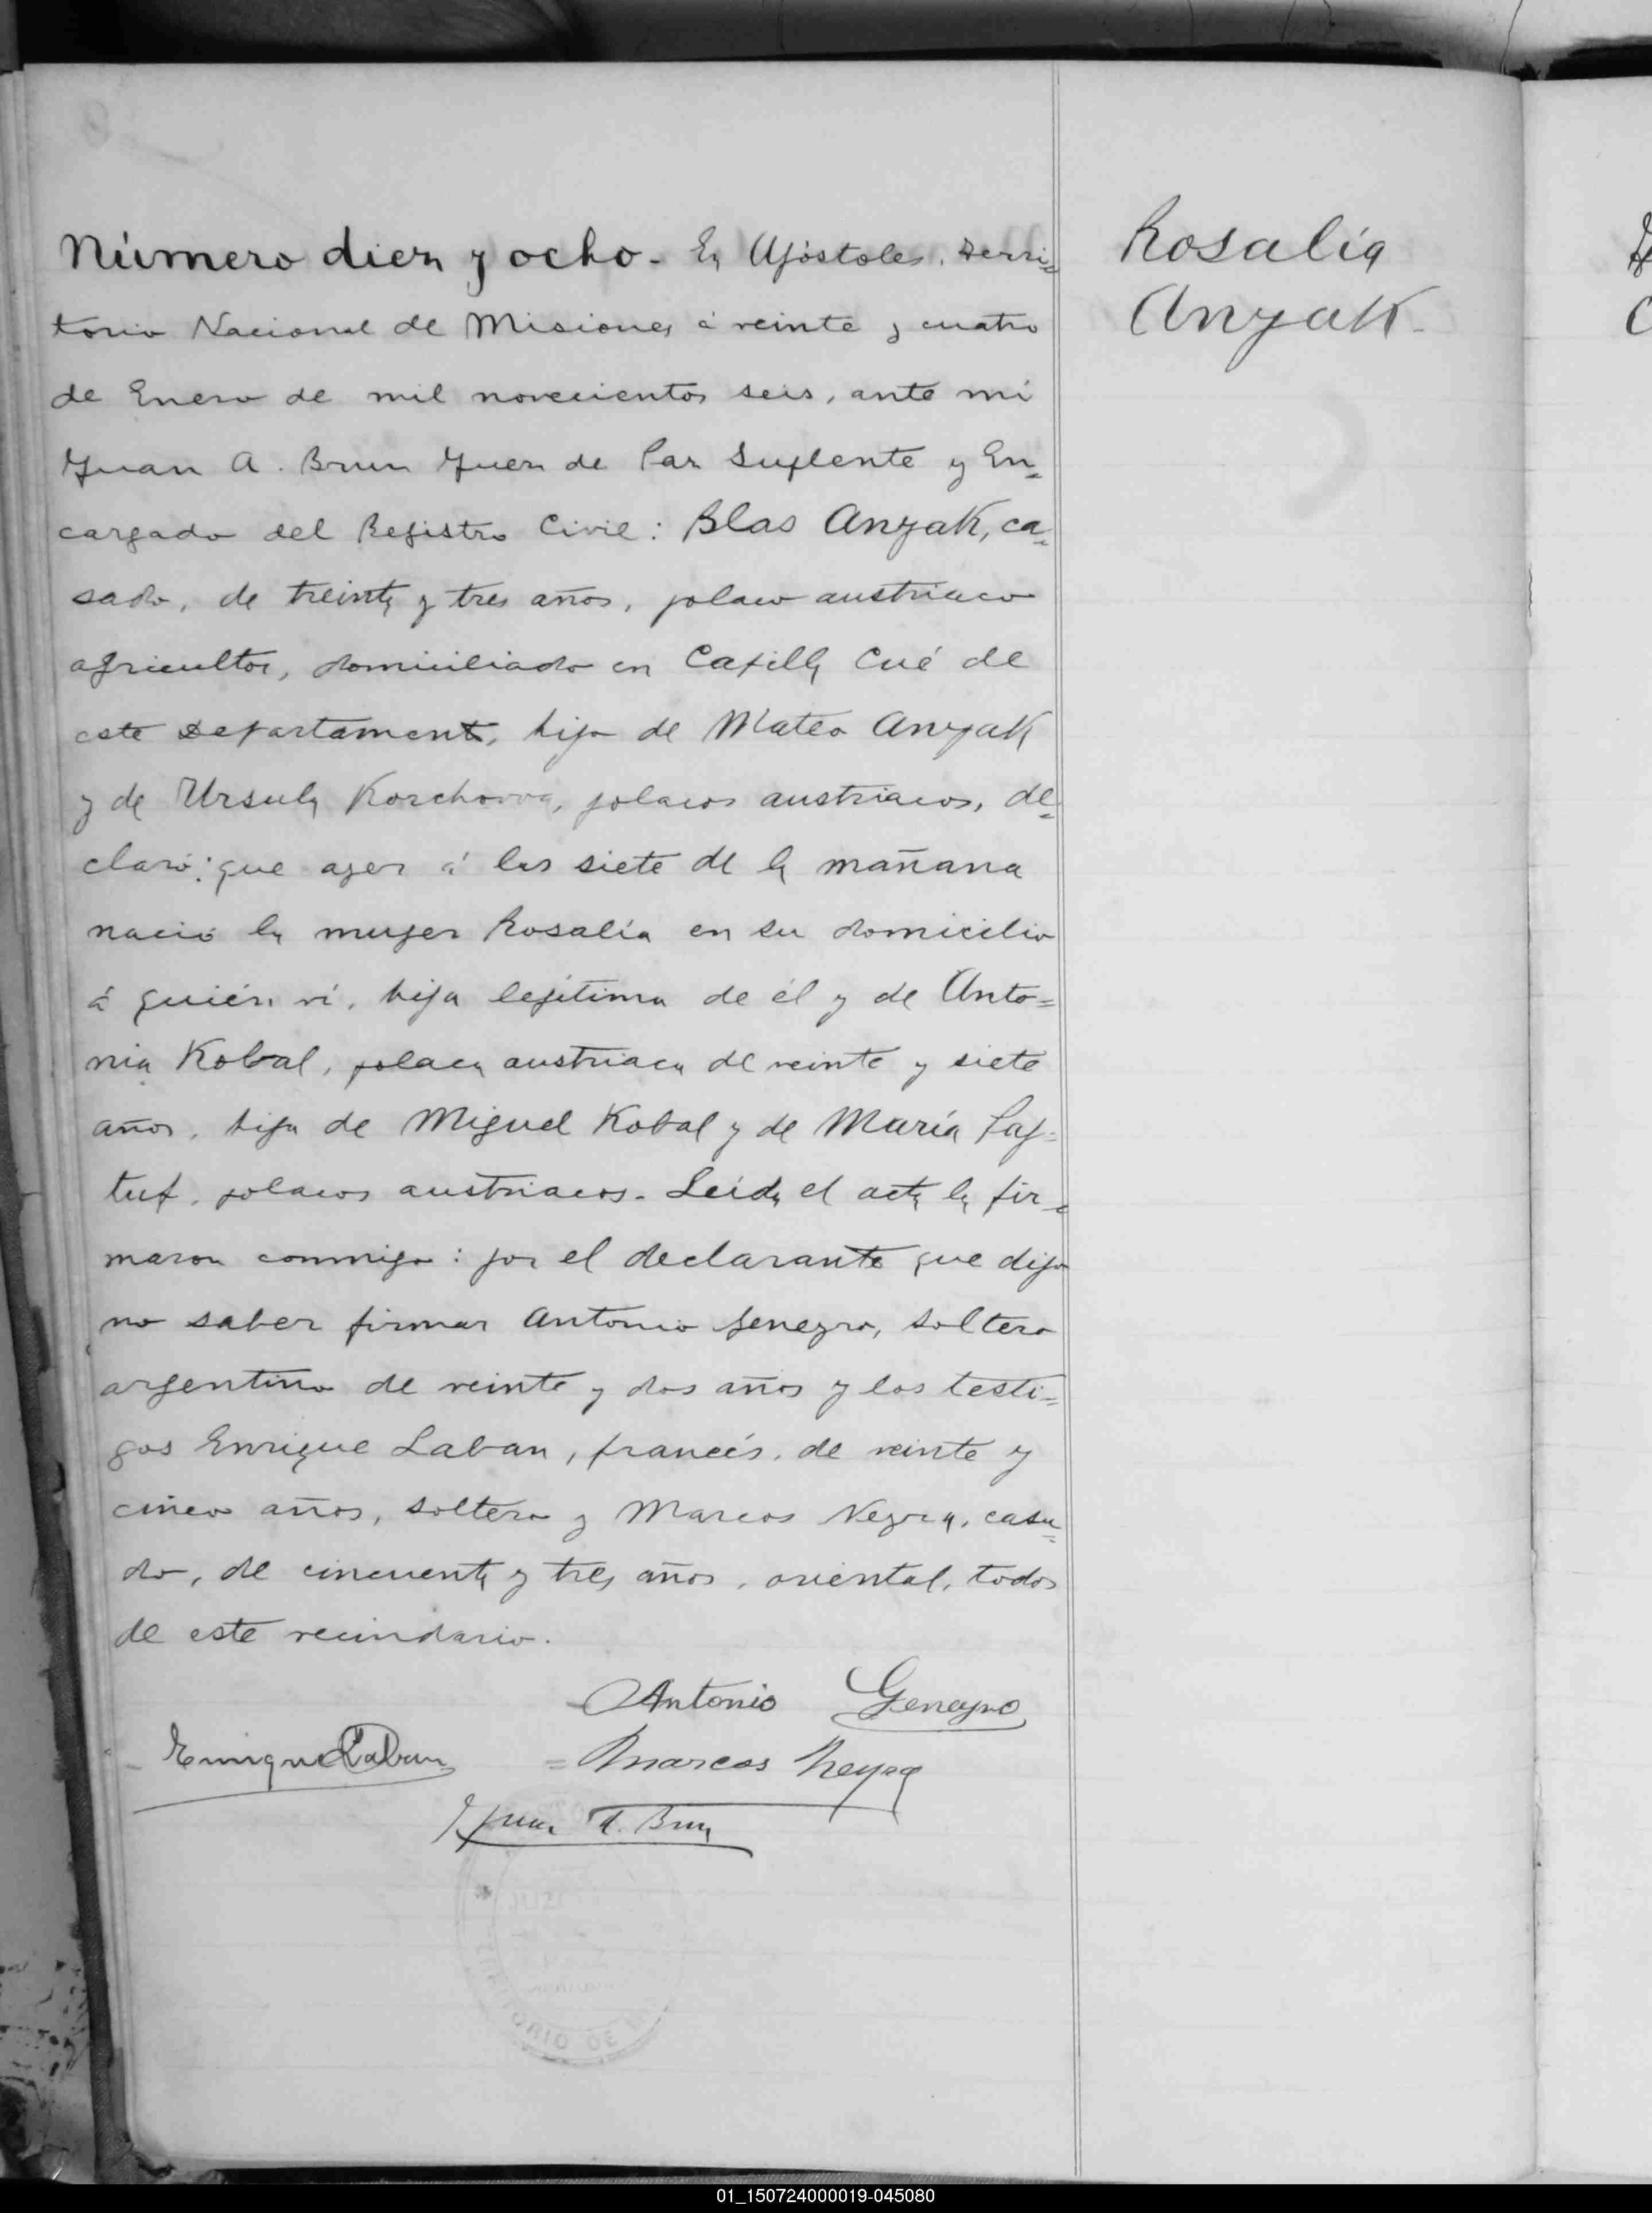 Número diez y ocho. En Apóstoles, Terri=
torio Nacional de Misiones á veinte y cuatro
de Enero de mil novecientos seis, ante mí
Juan A. Brun Juez de Paz Suplente y En=
cargado del Registro Civil: Blas Anyak, ca=
sado, de treinta y tres años, polaco austriaco
agricultor, domiciliado en Capilla Cué de
este Departamento, hijo de Mateo Anyak
y de Ursula Korchowa, polacos austriacos, de=
claró: que ayer á las siete de la mañana
nació la mujer Rosalía en su domicilio
á quién ví, hija legítima de él y de Anto=
nia Kobal, polaca austriaca de veinte y siete
años, hija de Miguel Kobal y de María
polacos austriacos. Leida el acta la fir=
maron conmigo: por el declarante que dijo
no saber firmar Antonio Geneyro, soltero
argentino de veinte y dos años y los testi=
gos Enrique Laban, francés, de veinte y
cinco años, soltero y Marcos Neyra, casa=
do, de cincuenta y tres años, oriental, todos
de este vecindario.
Antonio Geneyro
Enrique Laban = Marcos Neyra
Juan A. Brun
Rosalía
Anyak
TERRITORIO DE
01_150724000019-045080